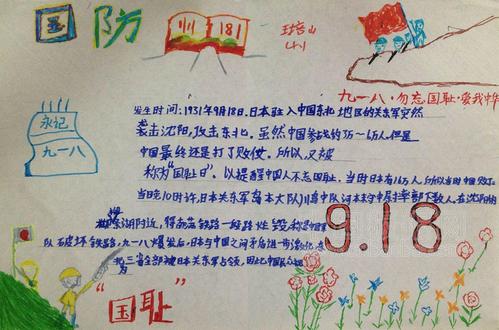 国防
九一八
181
九一八·勿忘国耻·爱我中华
永记
九一八
发生时间:1931年9月18日,日本驻入中国东北地区的关东军突然
袭击沈阳,攻击东北。虽然中国参战约35-6万人但是
中国最终还是打了败仗。所以,又被
称为“国耻日”。以提醒中国人不忘国耻,当时日本有
当日晚10时许,日本关东军岛本大队川岛中队河本末守中尉率部下数人,在沈阳
湖附近,将南满铁路一段路
队破坏铁路,九一八爆发后,日本与中国之间矛盾进一步激化,
三省全部被日本关东军占领,因此中国民众
为
9.18
“国耻”